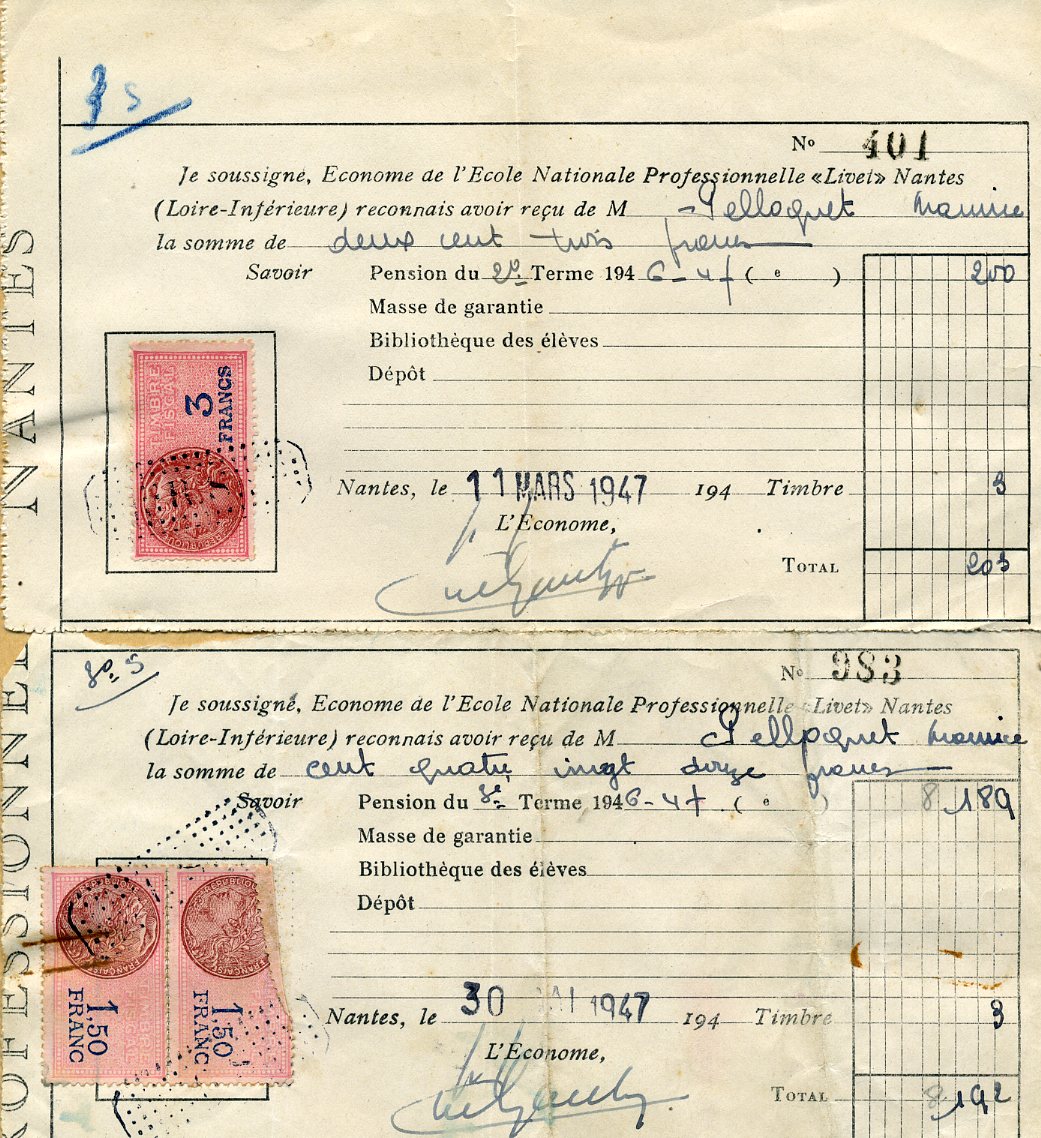 NANTES
Nº 401
Je soussigné, Econome de l'Ecole Nationale Professionnelle «Livet» Nantes
(Loire-Inférieure) reconnais avoir reçu de M Pelloquet Maurice
la somme de deux cent trois francs
Savoir Pension du 2e Terme 1946-47 ( e ) 200
Masse de garantie
Bibliothèque des élèves
Dépôt
TIMBRE FISCAL
3 FRANCS
Nantes, le 11 MARS 1947 194 Timbre 3
L'Econome,
TOTAL 203
Nº 983
Je soussigné, Econome de l'Ecole Nationale Professionnelle «Livet» Nantes
(Loire-Inférieure) reconnais avoir reçu de M Pelloquet Maurice
la somme de cent quatre vingt douze francs
Savoir Pension du 3e Terme 1946-47 ( e ) 189
Masse de garantie
Bibliothèque des élèves
Dépôt
REPUBLIQUE FRANÇAISE
TIMBRE FISCAL
1,50 FRANC
1,50 FRANC
Nantes, le 30 MAI 1947 194 Timbre 3
L'Econome,
TOTAL 192